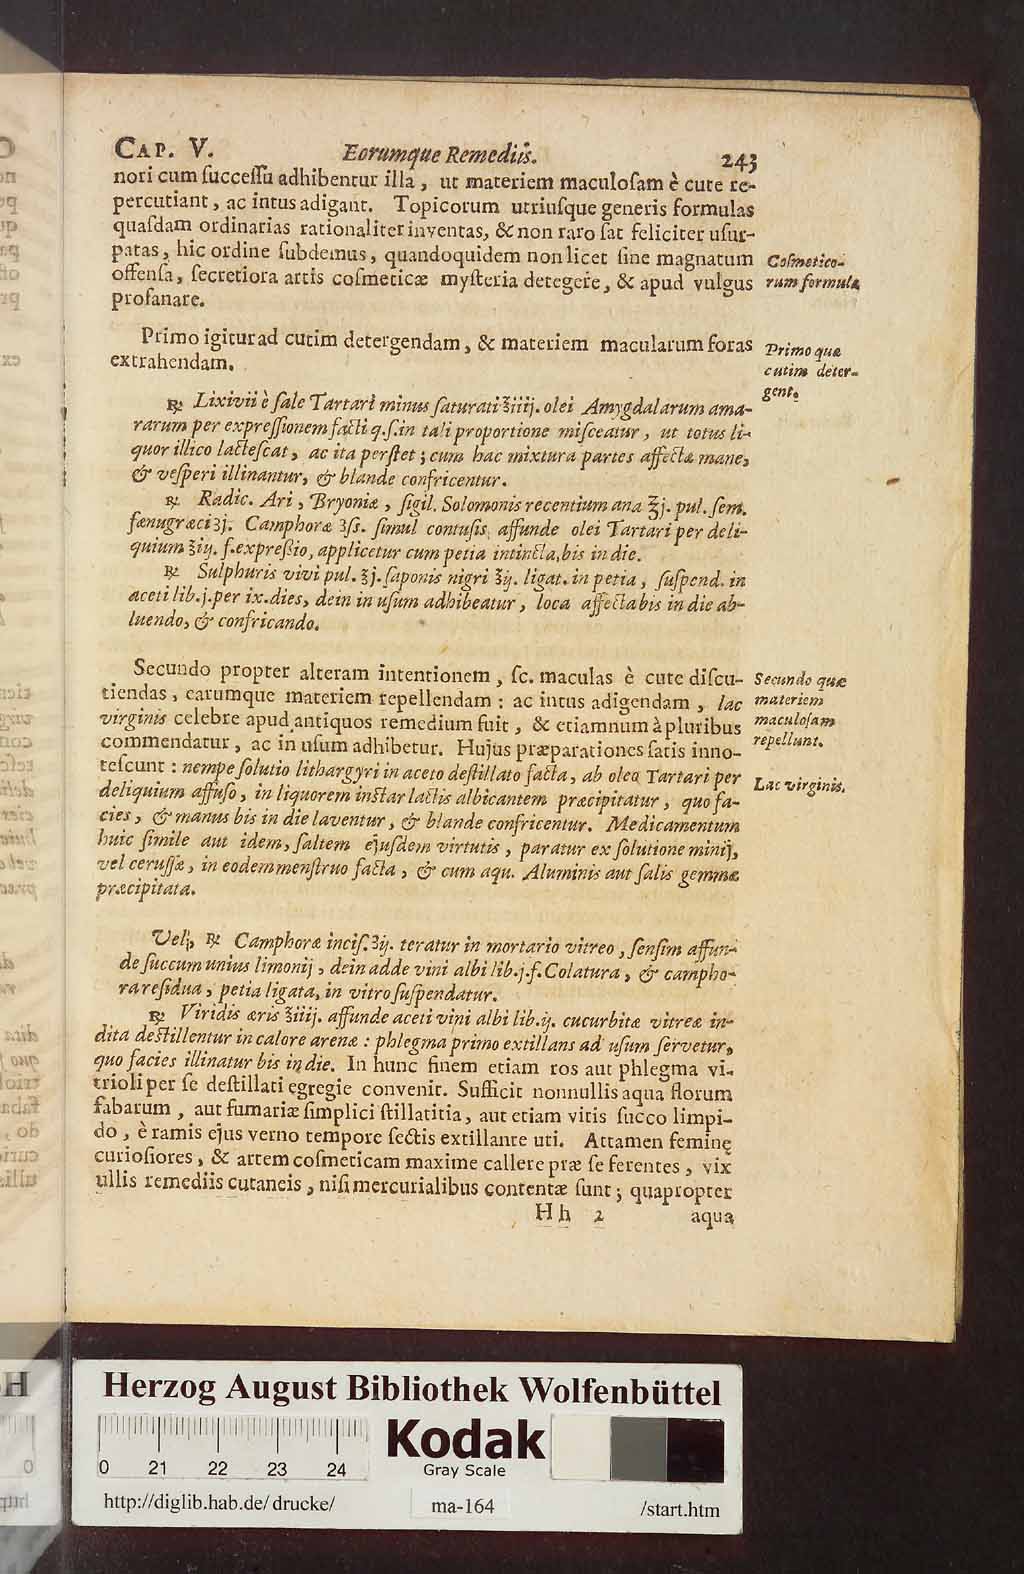 CAP. V. Eorumque Remediis. 243
nori cum ſucceſſu adhibentur illa, ut materiem maculoſam è cute re-
percutiant, ac intus adigant. Topicorum utriuſque generis formulas
quaſdam ordinarias rationaliter inventas, & non raro ſat feliciter uſur-
patas, hic ordine ſubdemus, quandoquidem non licet ſine magnatum
offenſa, ſecretiora artis coſmeticæ myſteria detegere, & apud vulgus
profanare.
Coſmetico-
rum formulæ
Primo igitur ad cutim detergendam, & materiem macularum foras
extrahendam.
Primo quæ
cutim deter-
gent.
℞ Lixivii è ſale Tartari minus ſaturati ℥iiij. olei Amygdalarum ama-
rarum per expreſſionem facti q.ſ. in tali proportione miſceatur, ut totus li-
quor illico lacteſcat, ac ita perſtet; cum hac mixtura partes affectæ mane,
& veſperi illinantur, & blande confricentur.
℞ Radic. Ari, Bryoniæ, ſigil. Solomonis recentium ana ℥j. pul. ſem.
fœnugræci ʒj. Camphoræ ʒſs. ſimul contuſis affunde olei Tartari per deli-
quium ℥iij. f. expreſſio, applicetur cum petia intincta, bis in die.
℞ Sulphuris vivi pul. ℥j. ſaponis nigri ℥ij. ligat. in petia, ſuſpend. in
aceti lib.j. per ix. dies, dein in uſum adhibeatur, loca affecta bis in die ab-
luendo, & confricando.
Secundo propter alteram intentionem, ſc. maculas è cute diſcu-
tiendas, earumque materiem repellendam: ac intus adigendam, lac
virginis celebre apud antiquos remedium fuit, & etiamnum à pluribus
commendatur, ac in uſum adhibetur. Hujus præparationes ſatis inno-
teſcunt: nempe ſolutio lithargyri in aceto deſtillato facta, ab oleo Tartari per
deliquium affuſo, in liquorem inſtar lactis albicantem præcipitatur, quo fa-
cies, & manus bis in die laventur, & blande confricentur. Medicamentum
huic ſimile aut idem, ſaltem ejuſdem virtutis, paratur ex ſolutione minij,
vel ceruſſæ, in eodem menſtruo facta, & cum aqu. Aluminis aut ſalis gemmæ
præcipitata.
Secundo quæ
materiem
maculoſam
repellunt.
Lac virginis.
Vel, ℞ Camphoræ inciſ. ʒij. teratur in mortario vitreo, ſenſim affun-
de ſuccum unius limonij, dein adde vini albi lib.j. f. Colatura, & campho-
ra reſidua, petia ligata, in vitro ſuſpendatur.
℞ Viridis æris ℥iiij. affunde aceti vini albi lib.ij. cucurbitæ vitreæ in-
dita deſtillentur in calore arenæ: phlegma primo extillans ad uſum ſervetur,
quo facies illinatur bis in die. In hunc finem etiam ros aut phlegma vi-
trioli per ſe deſtillati egregie convenit. Sufficit nonnullis aqua florum
fabarum, aut fumariæ ſimplici ſtillatitia, aut etiam vitis ſucco limpi-
do, è ramis ejus verno tempore ſectis extillante uti. Attamen feminę
curioſiores, & artem coſmeticam maxime callere præ ſe ferentes, vix
ullis remediis cutaneis, niſi mercurialibus contentæ ſunt; quapropter
Hh 2 aqua
Herzog August Bibliothek Wolfenbüttel
0 21 22 23 24
Kodak
Gray Scale
http://diglib.hab.de/drucke/ ma-164 /start.htm